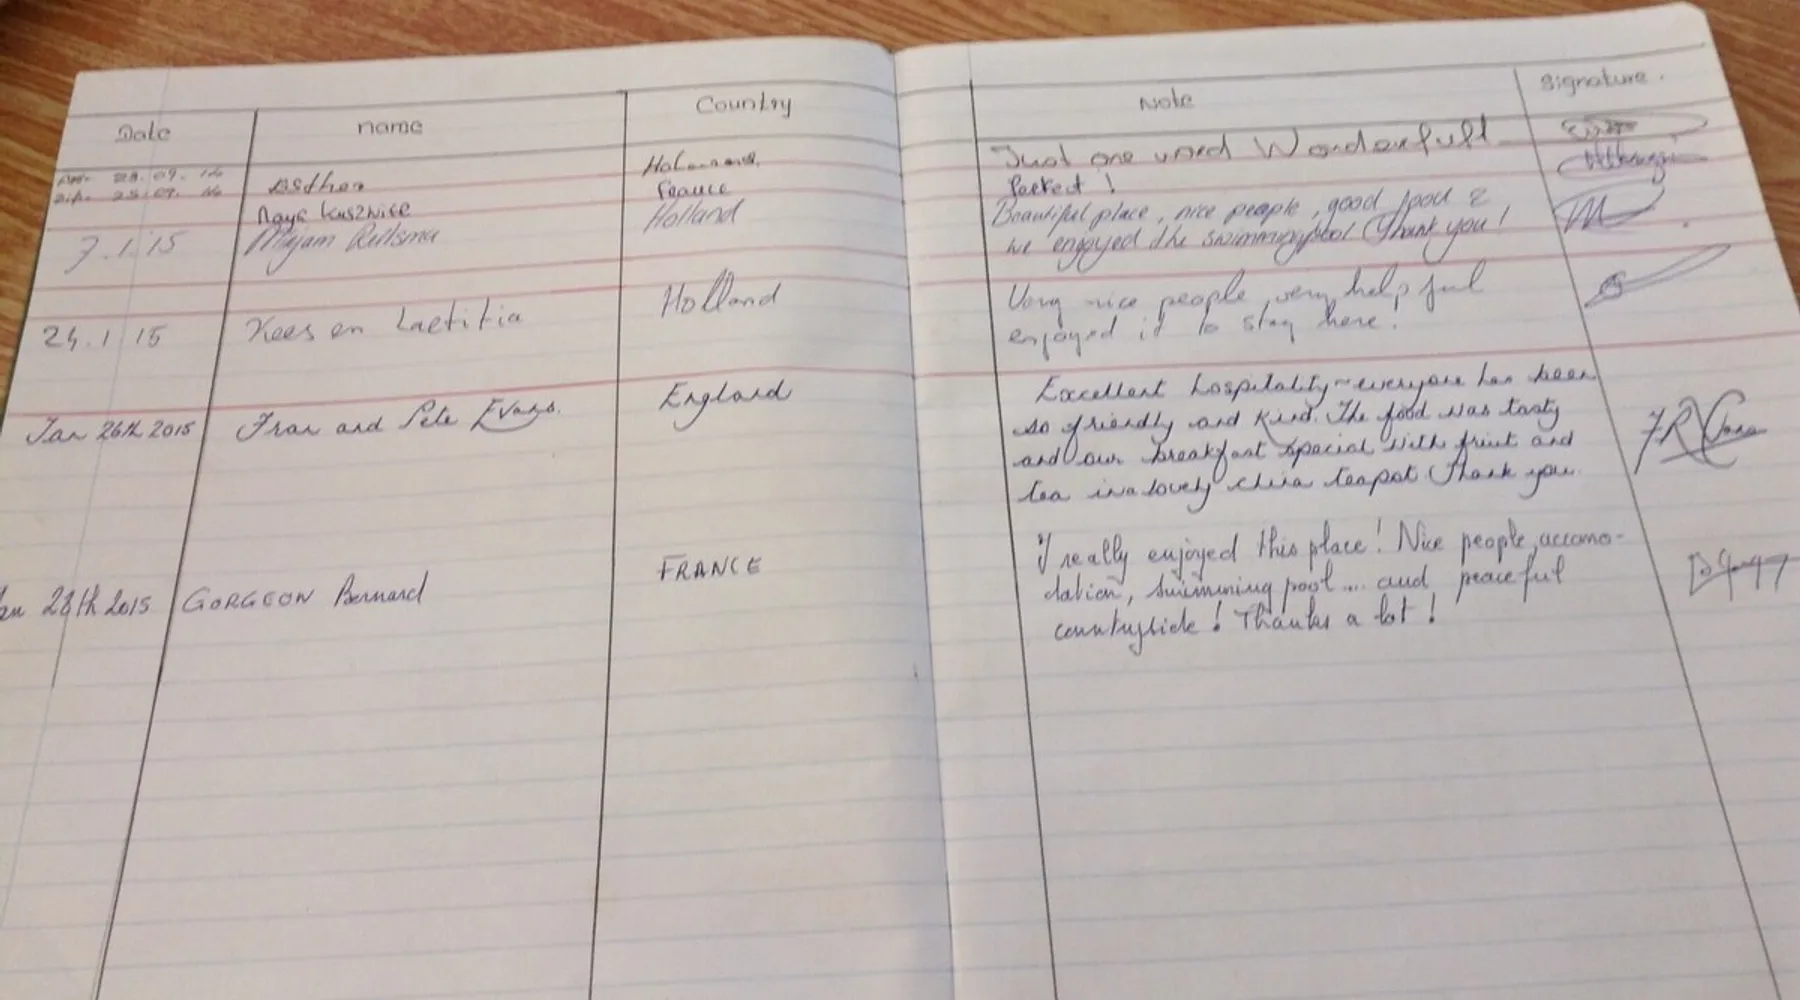 Date name Country Note Signature.
28.09.14 Esther Just one word Wonderfull
25.09. France Perfect !
Maya
7.1.15 Mirjam Reitsma Holland Beautiful place, nice people, good food &
we enjoyed the swimmingpool Thank you!
24.1 15 Kees en Laetitia Holland Very nice people, very helpful
enjoyed it to stay here.
Jan 26th 2015 Fran and Pete Evans. England Excellent hospitality - everyone has been
so friendly and kind. The food was tasty
and our breakfast special with fruit and
tea in a lovely china teapot Thank you.
28th 2015 GORGEON Bernard FRANCE I really enjoyed this place! Nice people, accomo-
dation, swimming pool ... and peaceful
countryside! Thanks a lot!